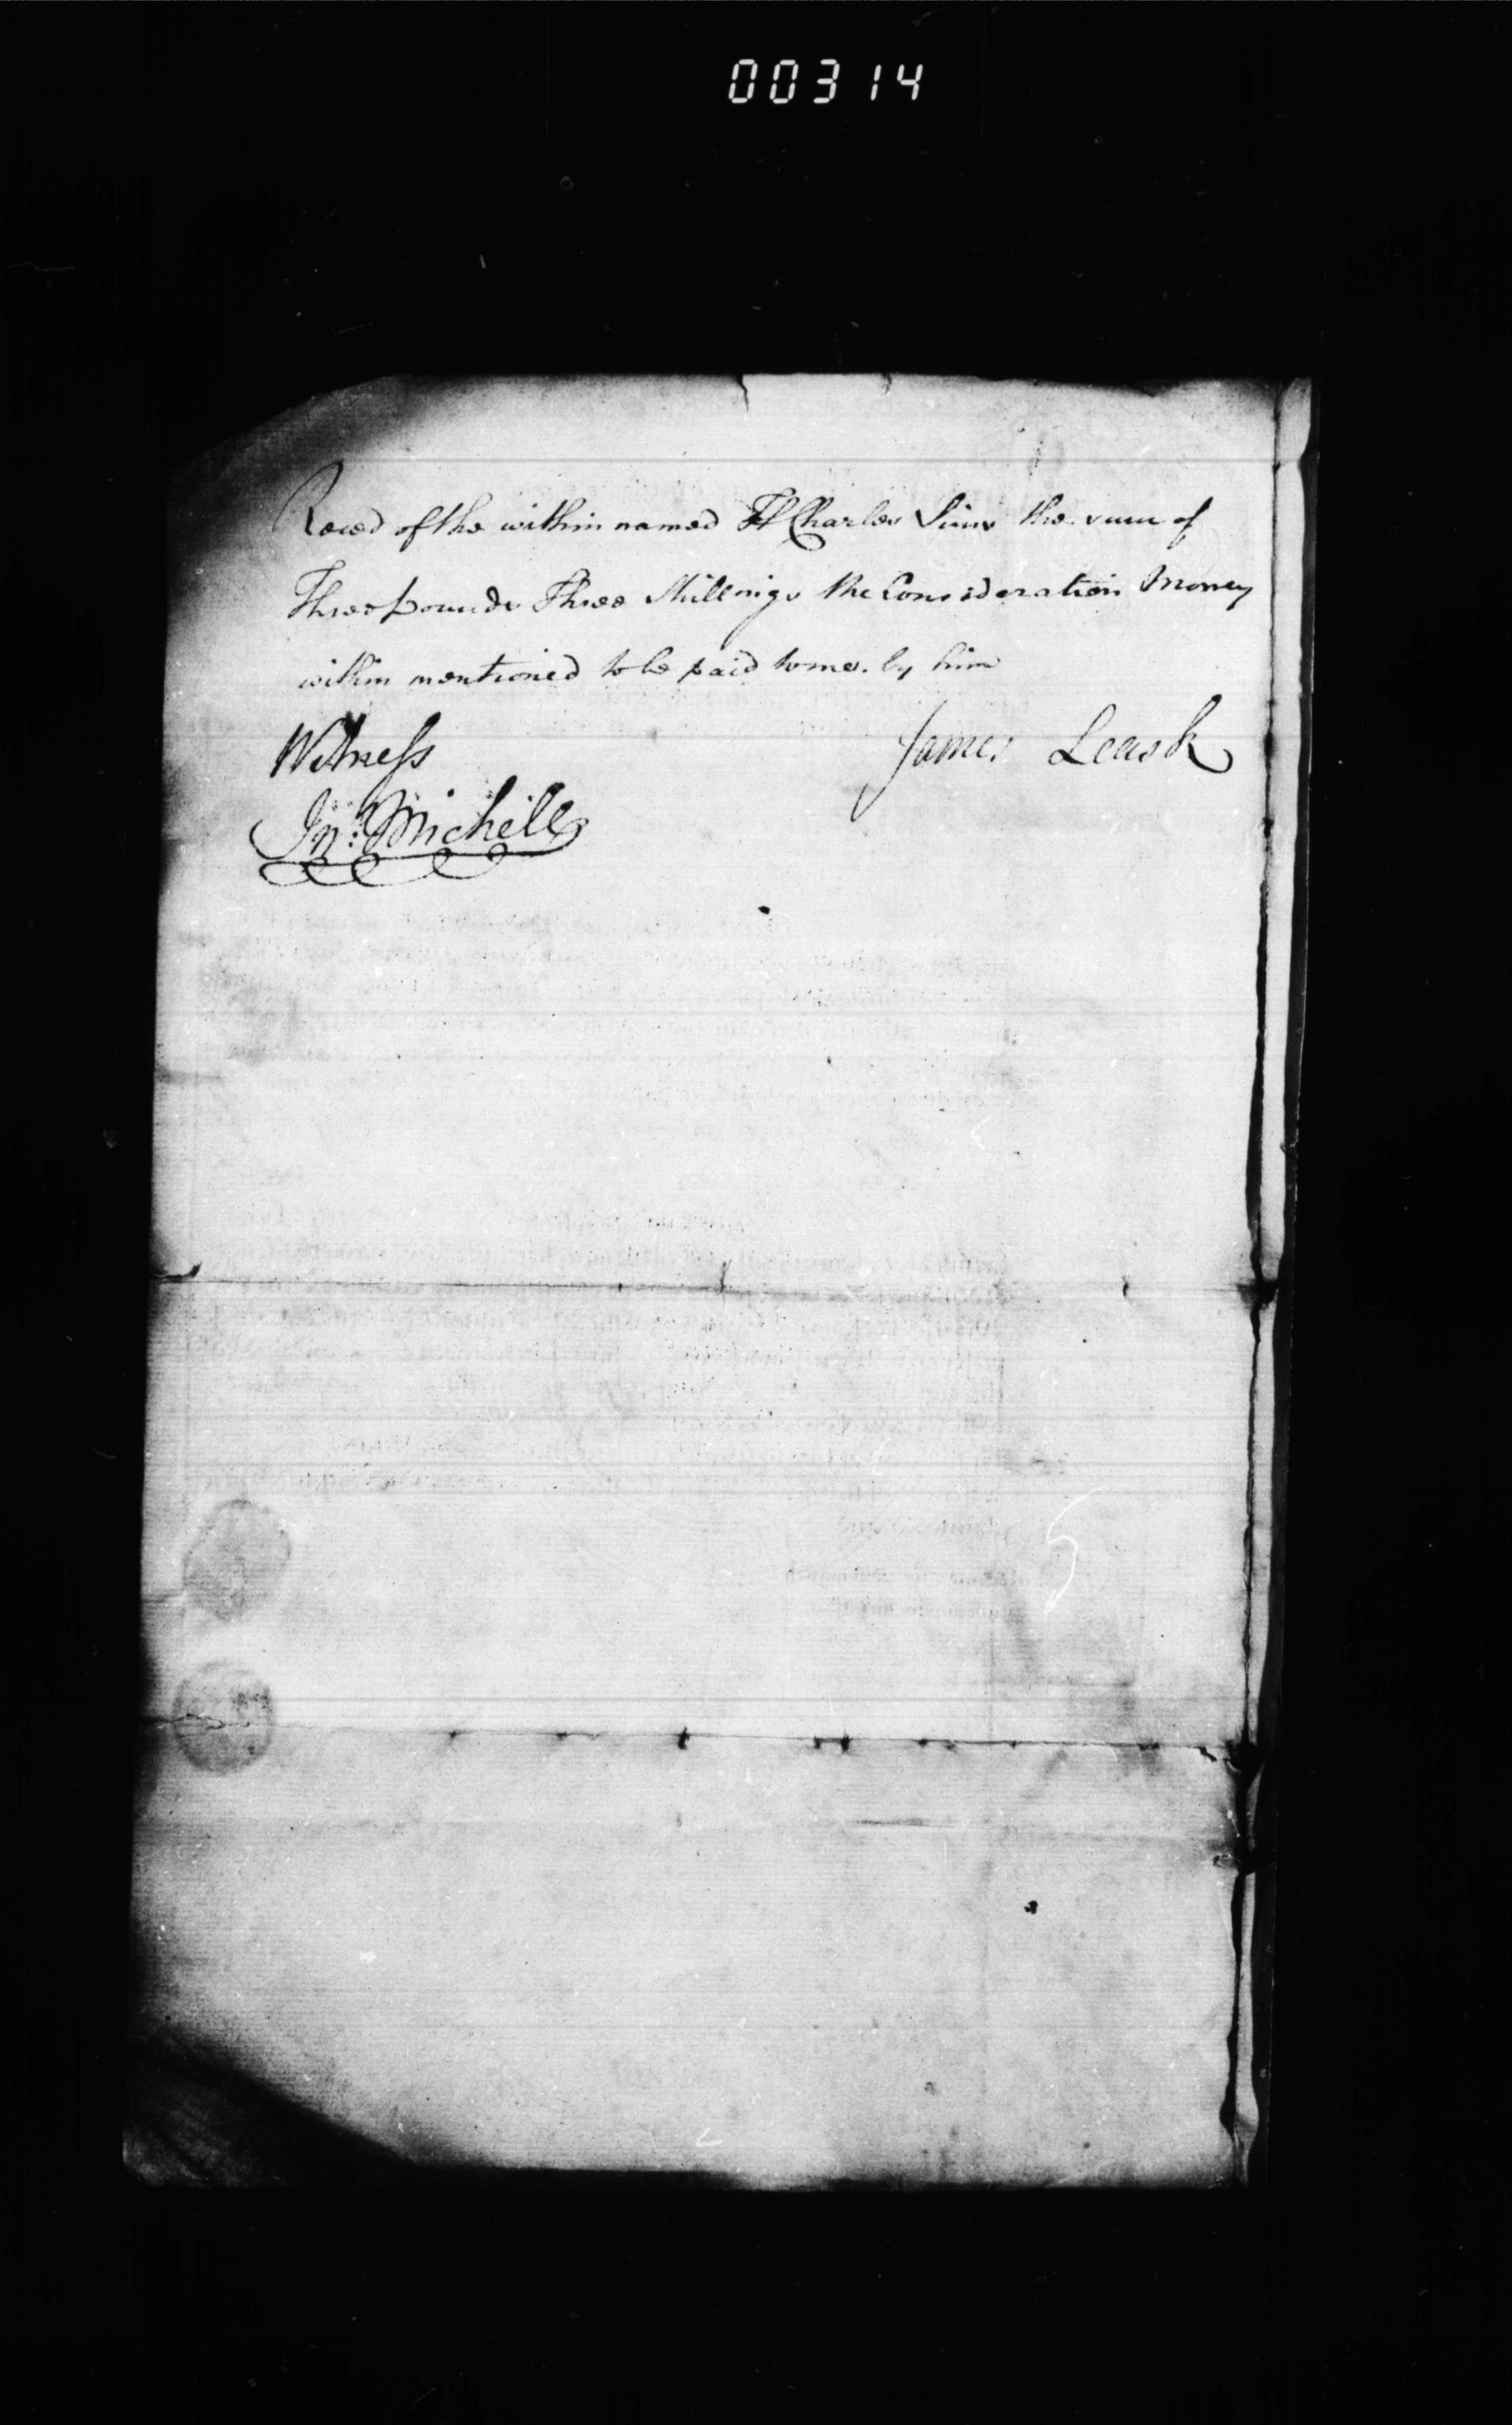 00314
Reced of the within named Charles Sims the sum of
Three pounds Three Shillings the Consideration Money
within mentioned to be paid to me by him
Witness James Leask
Jn: Michell